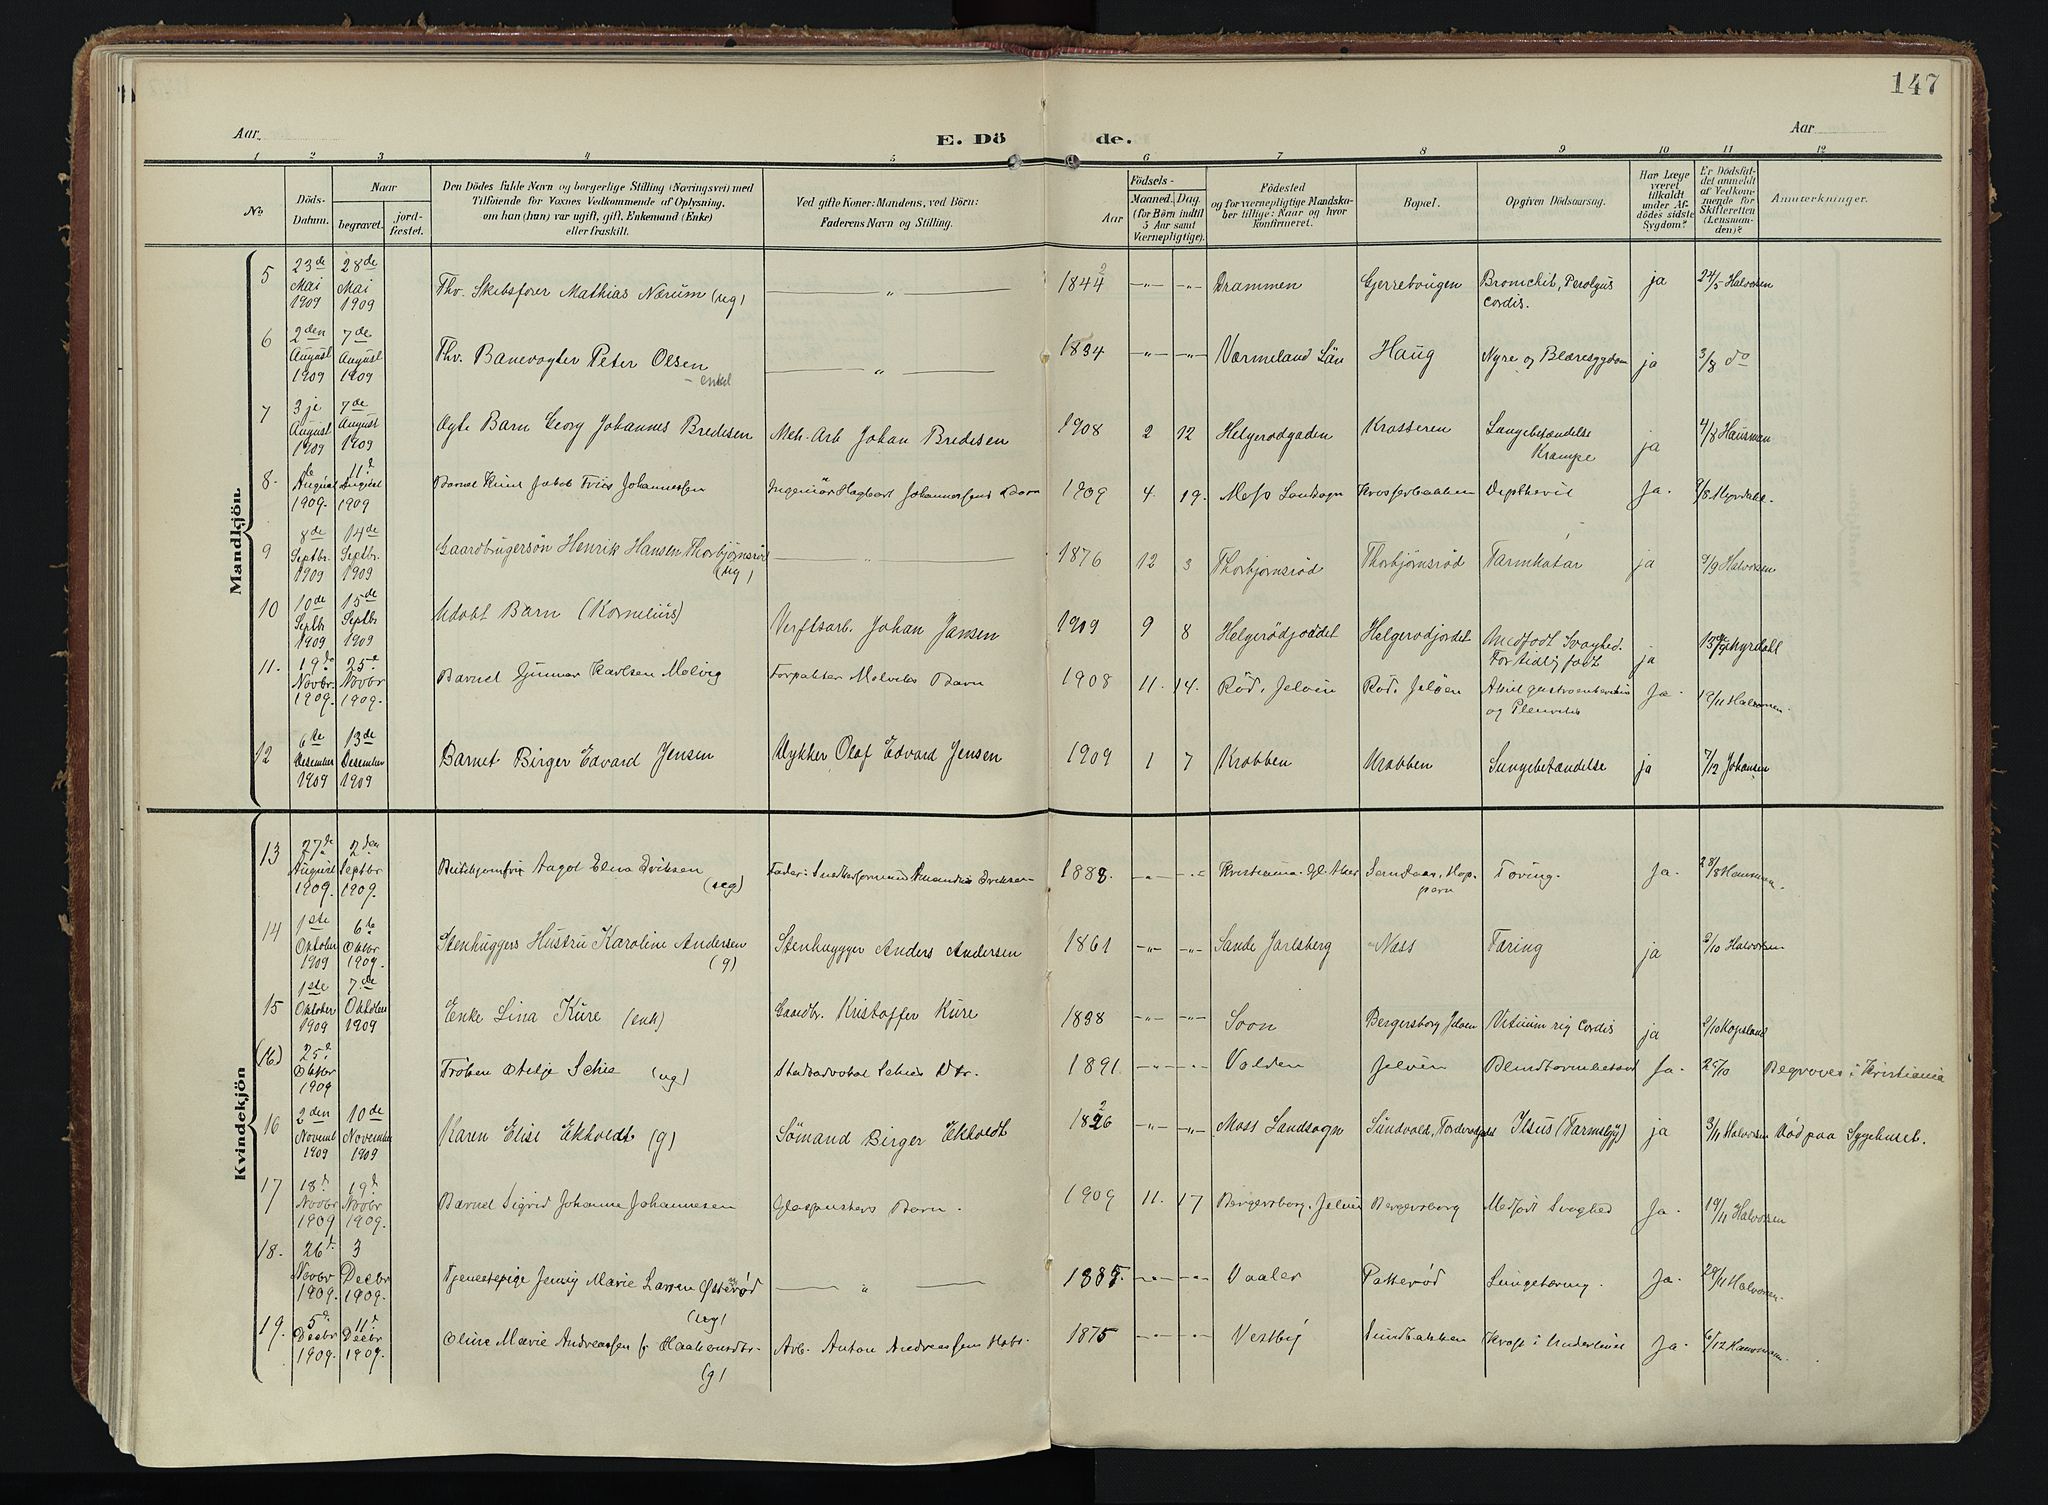 147
Aar
E. Dö de.
Aar
1 2 3 4 5 6 7 8 9 10 11 12
No.
Döds-Datum.
Naar
begravet.
jord-fæstet.
Den Dödes fulde Navn og borgerlige Stilling (Næringsvei) med
Tilföiende for Voxnes Vedkommende af Oplysning,
om han (hun) var ugift, gift, Enkemand (Enke)
eller fraskilt.
Ved gifte Koner: Mandens, ved Börn:
Faderens Navn og Stilling.
Aar
Födsels-
Maaned. Dag.
(for Börn indtil
5 Aar samt
Værnepligtige).
Födested
og for værnepligtige Mandska-
ber tillige: Naar og hvor
konfirmeret.
Bopæl.
Opgiven Dödsaarsag.
Har Læge
været
tilkaldt
under Af-
dödes sidste
Sygdom?
Er Dödsfal-
det anmeldt
af Vedkom-
mende for
Skifteretten
(Lensman-
den)?
Anmærkninger.
Mandkjön.
5 23de Mai 1909 28de Mai 1909 Fhv. Skibsfører Mathias Nærum (ug) — " — 1844 2 -"- -"- Drammen Gjerrebougen Bronchit, Paralysis cordis. ja 24/5 Halvorsen
6 2den August 1909 7de August 1909 Fhv. Banevogter Peter Olsen - enkel — " — 1834 -"- -"- Værmeland Län Haug Nyre og Blæresygdom ja 3/8 do
7 3je August 1909 7de August 1909 Ægte Barn Georg Johannes Bredesen Mek. Arb. Johan Bredesen 1908 2 12 Helgerødgaden Krosseren Lungebetændelse Krampe ja 4/8 Hausman
8. August 1909. 11te August 1909 Barnet Knut Jakob Friis Johannessen Ingeniör Hagbart Johannessens Barn 1909 4. 19. Moss Landsogn Krosserbakken Diptherit Ja. 9/8 Myrdahl.
9 8de Septbr. 1909 14de Septbr. 1909 Gaardbrugersøn Henrik Hansen Thorbjørnsrød (ug) — " — 1876 12 3 Thorbjørnsrød Thorbjørnsrød Tarmkatar ja 9/9 Halvorsen
10 10de Septbr 1909 15de Septbr 1909 Udøbt Barn (Kornelius) Verftsarb. Johan Jansen 1909 9 8 Helgerødjordet Helgerødjordet Medfødt Svaghed. For tidlig født ja 13/9 Myrdahl
11. 19de Novbr. 1909. 25de Novbr 1909. Barnet Gunnar Karlsen Molvig Forpakter Molvigs Barn 1908 11. 14. Rød, Jeløen Rød, Jeløen Akut gastroenteritis og Pleuritis Ja. 19/11 Halvorsen.
12 6te Desember 1909 13de Desember 1909 Barnet Birger Edvard Jensen Dykker Olaf Edvard Jensen 1909 1 7 Krabben Krabben Lungebetændelse ja 7/12 Johansen
Kvindekjön
13 27de August 1909. 2den Septbr 1909. Aagot Elena Eriksen (ug) Fader: Snedkerformand Amandus Eriksen 1888. -"- -"- Kristiania. Gl. Aker Sandaas, Hoppern Tæring. Ja. 28/8 Hausman.
14 1ste Oktober 1909 6te Oktbr 1909. Stenhuggers Hustru Karoline Andersen (g) Stenhugger Anders Andersen 1861 -"- -"- Sande Jarlsberg Næss Tæring ja 2/10 Halvorsen
15 1ste Oktober 1909 7de Oktober 1909 Enke Lina Kure (enk) Gaardbr. Kristoffer Kure 1838 -"- -"- Soon Bergersborg Jeløen Vitium rig Cordis ja 2/10 Kopsland
(16) 25de Oktbr 1909 Frøken Otelje Schie (ug) Stadsadvokat Schies Dtr. 1891 -"- -"- Volden Jeløen Blindtarmbetænd Ja. 25/10 Begraves i Kristiania
16 2den Novemb 1909 10de November 1909 Karen Elise Ekholdt (g) Sømand Birger Ekholdt 1826 2 -"- -"- Moss Landsogn Sundvold, Tordersødjordet Ilsus (Tarmslyng) ja 3/11 Halvorsen Død paa Sygehuset.
17 18de Novbr 1909 19de Novbr 1909. Barnet Sigrid Johanne Johannesen Glaspusters Barn. 1909 11. 17 Bergersborg. Jeløen Bergersborg Medfødt Svaghed Ja. 19/11 Halvorsen
18. 26de Novbr 1909. 3 Decbr 1909. Tjenestepige Jenny Marie Larsen Østerød (ug) — " — 1885. -"- -"- Vaaler Patterød Lungetæring. Ja. 29/11 Halvorsen.
19. 5te Decbr 1909. 11te Decbr 1909. Oline Marie Andreassen f. Haakensdtr. (g) Arb. Anton Andreassens Hustr. 1875 -"- -"- Vestby Sundbakken Kræft i Underlivet Ja. 6/12 Hausmann.